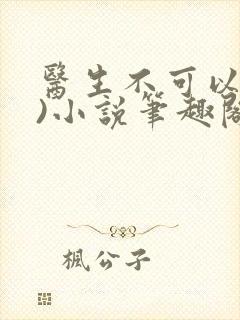 醫生不可以
)小說筆趣閣
楓公子